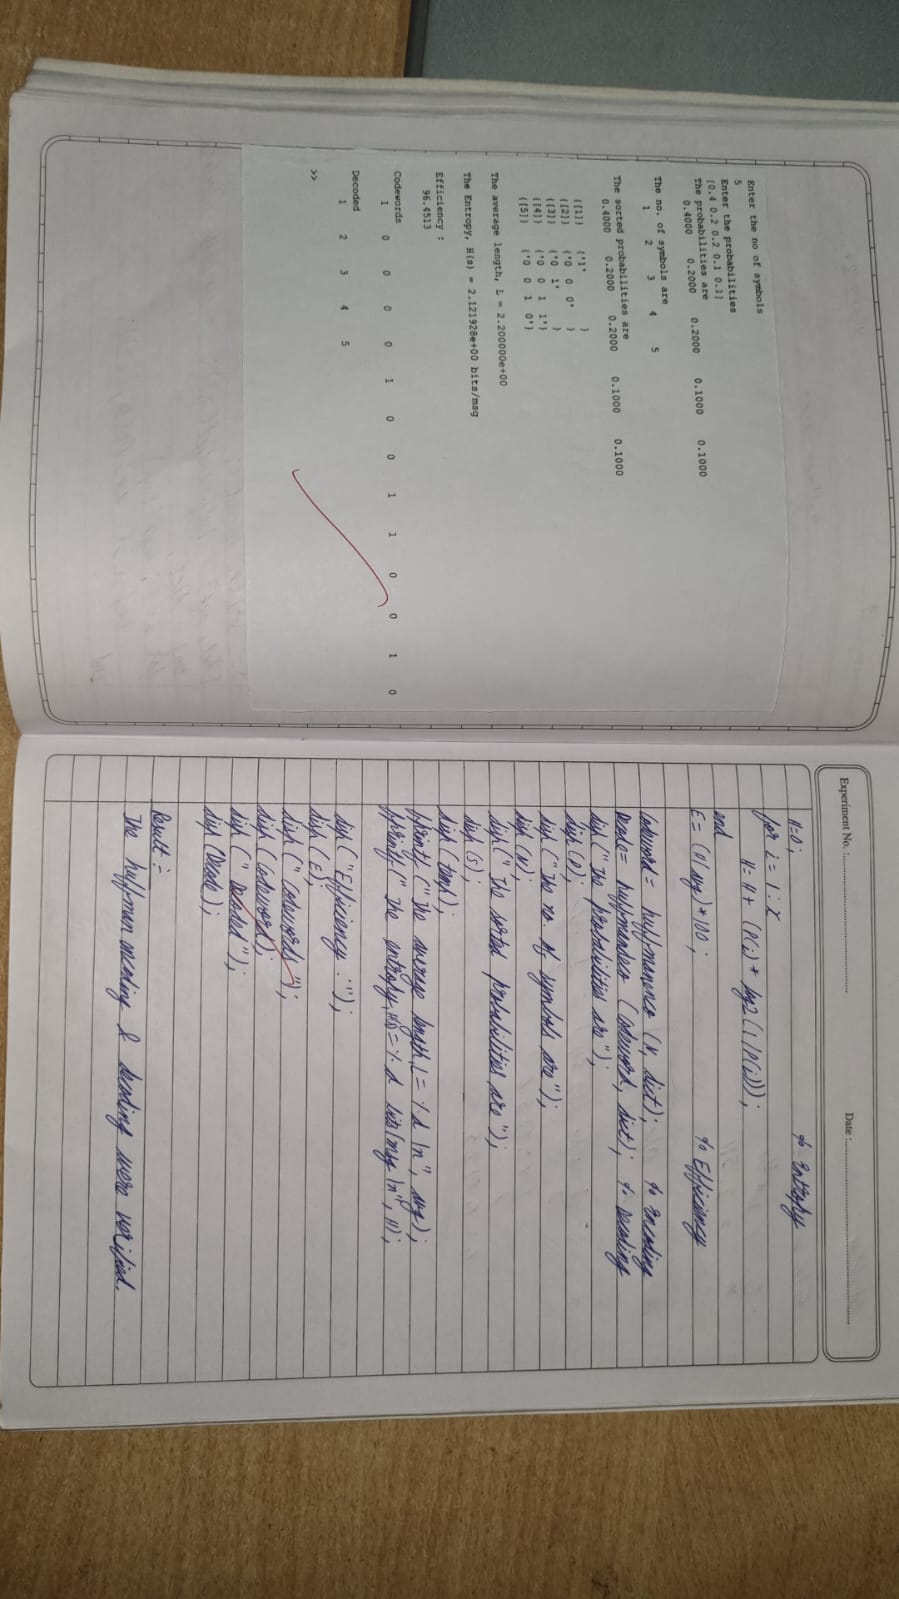 Enter the no of symbols
5
Enter the probabilities
[0.4 0.2 0.2 0.1 0.1]
The probabilities are
0.4000 0.2000 0.2000 0.1000 0.1000
The no. of symbols are
1 2 3 4 5
The sorted probabilities are
0.4000 0.2000 0.2000 0.1000 0.1000
{[1]} {'1' }
{[2]} {'0 0' }
{[3]} {'0 1' }
{[4]} {'0 0 1 1'}
{[5]} {'0 0 1 0'}
The average length, L = 2.200000e+00
The Entropy, H(s) = 2.121928e+00 bits/msg
Efficiency :
96.4513
Codewords
1 0 0 0 0 1 0 0 1 1 0 0 1 0
Decoded
1 2 3 4 5
>>
Experiment No. : Date :
H=0; % Entropy
for i = 1:x
H = H + (P(i) * log2(1/P(i)));
end
E = (H/avg)*100; % Efficiency
codeword = huffmanenco (N, dict); % encoding
Decode = huffmandeco (codeword, dict); % decoding
disp("The probabilities are");
disp(P);
disp("The no. of symbols are");
disp(N);
disp("The sorted probabilities are");
disp(S);
disp(temp);
fprintf("The average length, L = %d \n", avg);
fprintf("The entropy, H(s) = %d bits/msg \n", H);
disp("Efficiency :");
disp(E);
disp("Codewords");
disp(codeword);
disp("Decoded");
disp(Decode);
Result :-
The huffman encoding & decoding were verified.